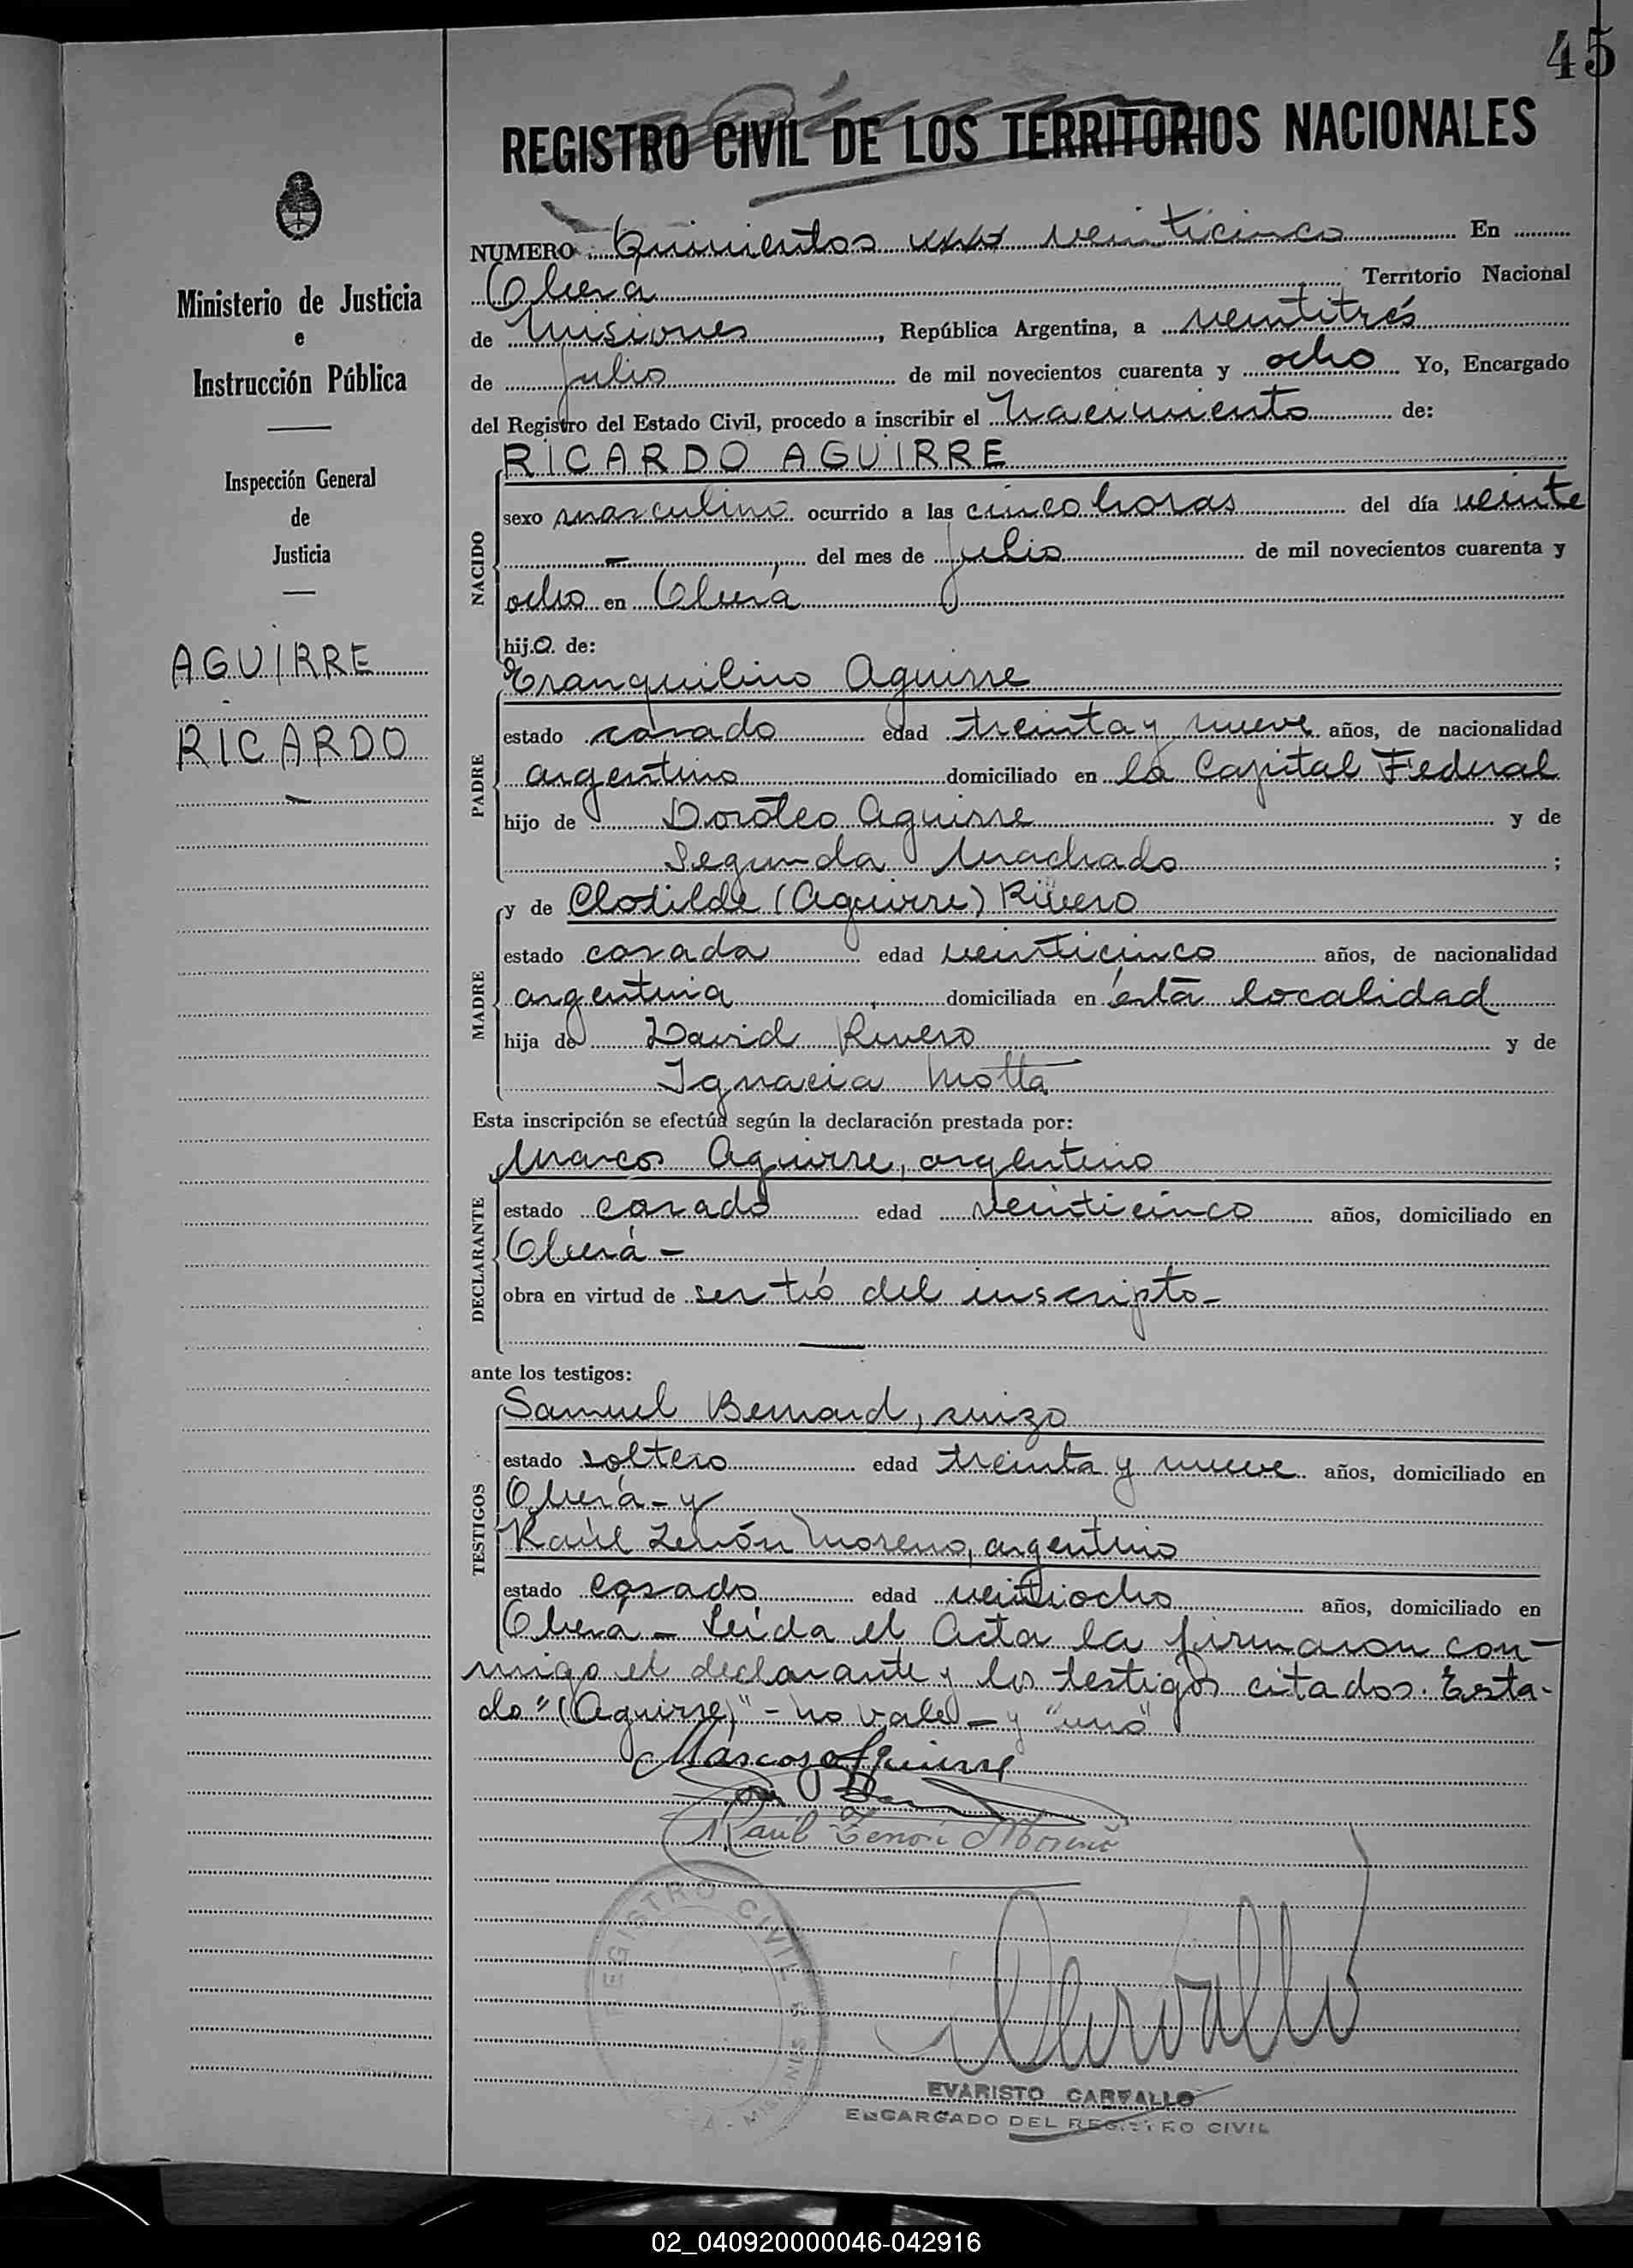 45
REGISTRO CIVIL DE LOS TERRITORIOS NACIONALES
NUMERO Quinientos veinticinco En
Oberá Territorio Nacional
de Misiones, República Argentina, a veintitrés
de julio de mil novecientos cuarenta y ocho Yo, Encargado
del Registro del Estado Civil, procedo a inscribir el nacimiento de:
Ministerio de Justicia
e
Instrucción Pública
Inspección General
de
Justicia
AGUIRRE
RICARDO
NACIDO
RICARDO AGUIRRE
sexo masculino ocurrido a las cinco horas del día veinte
- del mes de julio de mil novecientos cuarenta y
ocho en Oberá
hijo de:
PADRE
Tranquilino Aguirre
estado casado edad treinta y nueve años, de nacionalidad
argentino domiciliado en la Capital Federal
hijo de Doroteo Aguirre y de
Segunda Machado ;
MADRE
y de Clotilde (Aguirre) Rivero
estado casada edad veinticinco años, de nacionalidad
argentina domiciliada en ésta localidad
hija de David Rivero y de
Ignacia Motta
Esta inscripción se efectúa según la declaración prestada por:
DECLARANTE
Marcos Aguirre, argentino
estado casado edad veinticinco años, domiciliado en
Oberá -
obra en virtud de ser tío del inscripto -
ante los testigos:
TESTIGOS
Samuel Bernard, suizo
estado soltero edad treinta y nueve años, domiciliado en
Oberá - y
Raúl Zenón Moreno, argentino
estado casado edad veintiocho años, domiciliado en
Oberá - Leída el Acta la firmaron con-
migo el declarante y los testigos citados. Esta-
do "(Aguirre)" - no vale - y "uno"
Marcos Aguirre
Raúl Zenón Moreno
REGISTRO CIVIL
MISIONES
EVARISTO CARVALLO
ENCARGADO DEL REGISTRO CIVIL
02_040920000046-042916